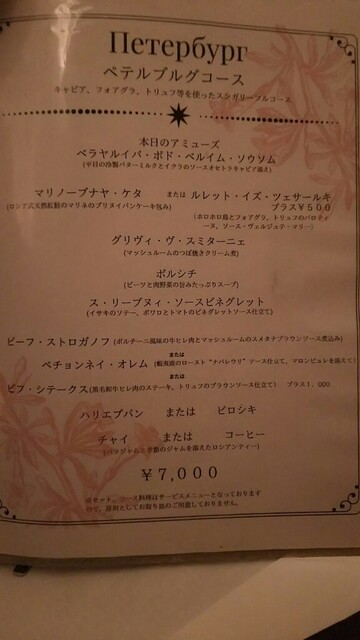 Петербург
ペテルブルグコース
キャビア、フォアグラ、トリュフ等を使ったスシガリーフルコース
本日のアミューズ
ベラヤルイバ・ポド・ベルイム・ソウソム
(平目の冷製バターミルクとイクラのソースオセトラキャビア添え)
マリノーブナヤ・ケタ または ルレット・イズ・ツェサールキ
プラス￥500
(ロシア式天然紅鮭のマリネのブリヌイパンケーキ包み)
(ホロホロ鳥とフォアグラ、トリュフのバロティーヌ、ソース・ヴェルジュテ・マリー)
グリヴィ・ヴ・スミターニェ
(マッシュルームのつぼ焼きクリーム煮)
ボルシチ
(ビーツと肉野菜の旨みたっぷりスープ)
ス・リーブヌィ・ソースビネグレット
(イサキのソテー、ポワロとトマトのビネグレットソース仕立て)
ビーフ・ストロガノフ (ポルチーニ風味の牛ヒレ肉とマッシュルームのスメタナブラウンソース煮込み)
または
ペチョンネイ・オレム (蝦夷鹿のロースト ソース仕立て、マロンピュレを添えて)
または
ビフ・シテークス (黒毛和牛ヒレ肉のステーキ、トリュフのブラウンソース仕立て) プラス1,000
ハリエブパン または ピロシキ
チャイ または コーヒー
(バラジャムと季節のジャムを添えたロシアンティー)
￥7,000
コース料理はサービスメニューとなっております
ので、原則としてお取り皿のご用意しておりません。